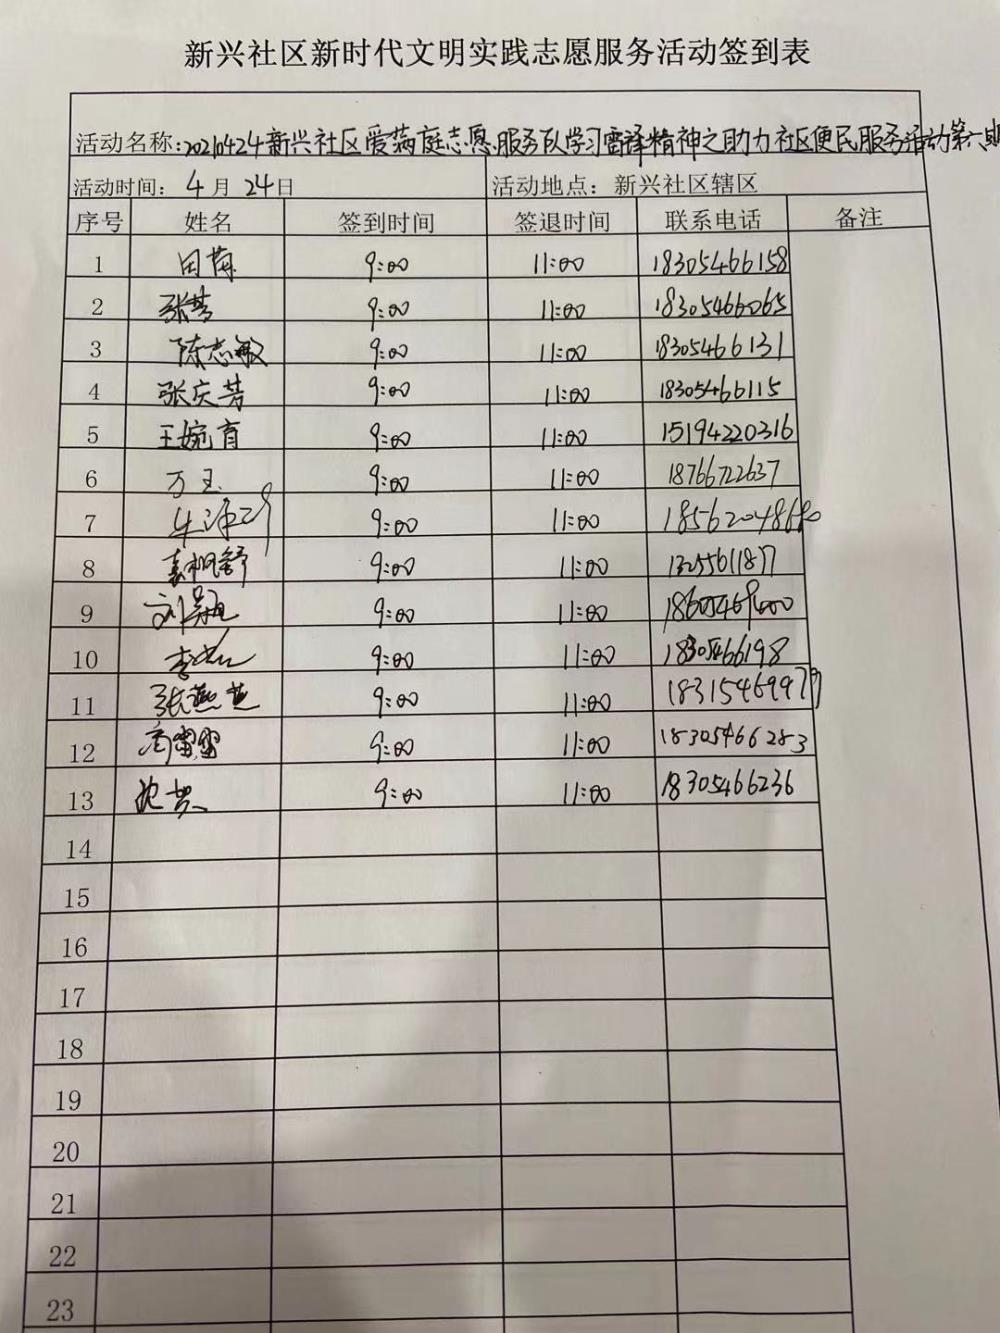 新兴社区新时代文明实践志愿服务活动签到表
活动名称:20210424新兴社区爱满庭志愿服务队学习雷锋精神之助力社区便民服务活动第六期
活动时间: 4月24日 活动地点: 新兴社区辖区
序号 姓名 签到时间 签退时间 联系电话 备注
1 田梅 9:00 11:00 18305466158
2 张芳 9:00 11:00 18305466065
3 陈志敏 9:00 11:00 18305466131
4 张庆芳 9:00 11:00 18305466115
5 王婉育 9:00 11:00 15194220316
6 万玉 9:00 11:00 18766722637
7 9:00 11:00
8 9:00 11:00 13255611877
9 刘 9:00 11:00
10 李 9:00 11:00 18305466198
11 张燕燕 9:00 11:00 18315469979
12 高雷雷 9:00 11:00 18305466283
13 9:00 11:00 18305466236
14
15
16
17
18
19
20
21
22
23